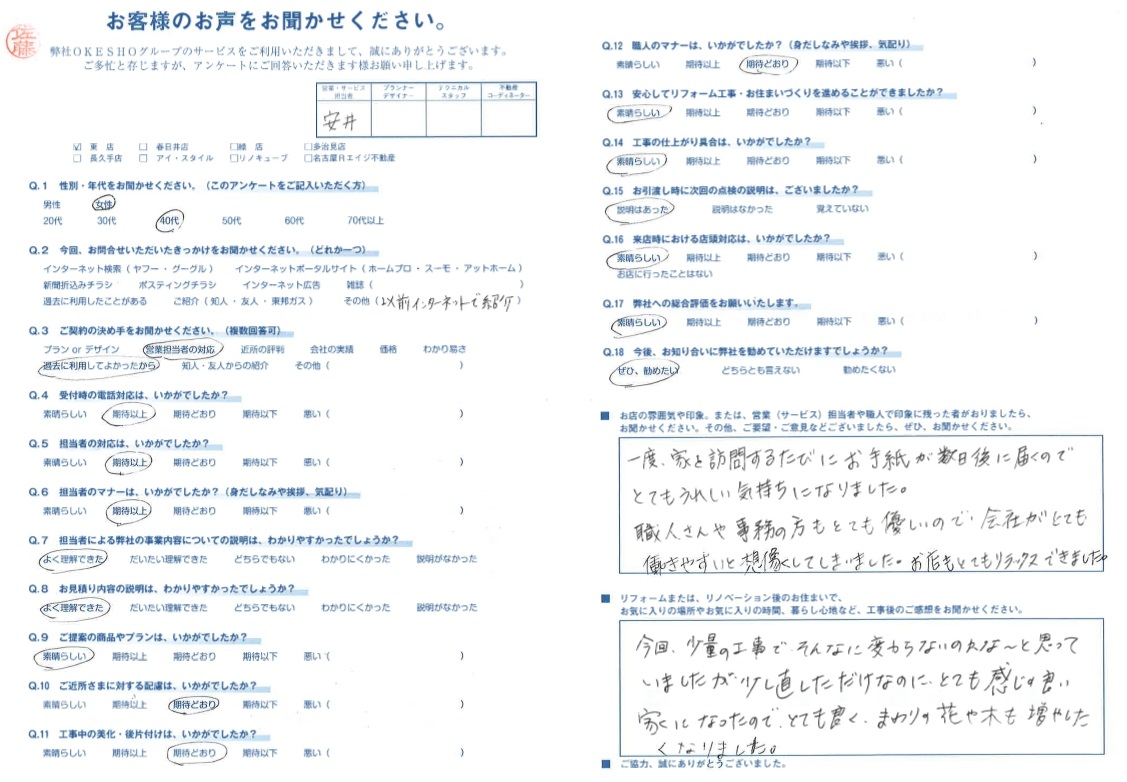 お客様のお声をお聞かせください。
佐藤
弊社OKESHOグループのサービスをご利用いただきまして、誠にありがとうございます。
ご多忙と存じますが、アンケートにご回答いただきます様お願い申し上げます。
営業・サービス担当者 プランナーデザイナー テクニカルスタッフ 不動産コーディネーター
安井
☑ 東 店 □ 春日井店 □緑 店 □多治見店
□ 長久手店 □ アイ・スタイル □リノキューブ □名古屋Rエイジ不動産
Q.1 性別・年代をお聞かせください。(このアンケートをご記入いただく方)
男性 女性
20代 30代 40代 50代 60代 70代以上
Q.2 今回、お問合せいただいたきっかけをお聞かせください。(どれか一つ)
インターネット検索(ヤフー・グーグル) インターネットポータルサイト(ホームプロ・スーモ・アットホーム)
新聞折込みチラシ ポスティングチラシ インターネット広告 雑誌( )
過去に利用したことがある ご紹介(知人・友人・東邦ガス) その他(以前インターネットで紹介)
Q.3 ご契約の決め手をお聞かせください。(複数回答可)
プラン or デザイン 営業担当者の対応 近所の評判 会社の実績 価格 わかり易さ
過去に利用してよかったから 知人・友人からの紹介 その他( )
Q.4 受付時の電話対応は、いかがでしたか?
素晴らしい 期待以上 期待どおり 期待以下 悪い( )
Q.5 担当者の対応は、いかがでしたか?
素晴らしい 期待以上 期待どおり 期待以下 悪い( )
Q.6 担当者のマナーは、いかがでしたか?(身だしなみや挨拶、気配り)
素晴らしい 期待以上 期待どおり 期待以下 悪い( )
Q.7 担当者による弊社の事業内容についての説明は、わかりやすかったでしょうか?
よく理解できた だいたい理解できた どちらでもない わかりにくかった 説明がなかった
Q.8 お見積り内容の説明は、わかりやすかったでしょうか?
よく理解できた だいたい理解できた どちらでもない わかりにくかった 説明がなかった
Q.9 ご提案の商品やプランは、いかがでしたか?
素晴らしい 期待以上 期待どおり 期待以下 悪い( )
Q.10 ご近所さまに対する配慮は、いかがでしたか?
素晴らしい 期待以上 期待どおり 期待以下 悪い( )
Q.11 工事中の美化・後片付けは、いかがでしたか?
素晴らしい 期待以上 期待どおり 期待以下 悪い( )
Q.12 職人のマナーは、いかがでしたか?(身だしなみや挨拶、気配り)
素晴らしい 期待以上 期待どおり 期待以下 悪い( )
Q.13 安心してリフォーム工事・お住まいづくりを進めることができましたか?
素晴らしい 期待以上 期待どおり 期待以下 悪い( )
Q.14 工事の仕上がり具合は、いかがでしたか?
素晴らしい 期待以上 期待どおり 期待以下 悪い( )
Q.15 お引渡し時に次回の点検の説明は、ございましたか?
説明はあった 説明はなかった 覚えていない
Q.16 来店時における店頭対応は、いかがでしたか?
素晴らしい 期待以上 期待どおり 期待以下 悪い( )
お店に行ったことはない
Q.17 弊社への総合評価をお願いいたします。
素晴らしい 期待以上 期待どおり 期待以下 悪い( )
Q.18 今後、お知り合いに弊社を勧めていただけますでしょうか?
ぜひ、勧めたい どちらとも言えない 勧めたくない
■ お店の雰囲気や印象。または、営業(サービス)担当者や職人で印象に残った者がおりましたら、
お聞かせください。その他、ご要望・ご意見などございましたら、ぜひ、お聞かせください。
一度、家を訪問するたびにお手紙が数日後に届くので
とてもうれしい気持ちになりました。
職人さんや事務の方もとても優しいので、会社がとても
働きやすいと想像してしまいました。お店もとてもリラックスできました。
■ リフォームまたは、リノベーション後のお住まいで、
お気に入りの場所やお気に入りの時間、暮らし心地など、工事後のご感想をお聞かせください。
今回、少量の工事で、そんなに変わらないのかな〜と思って
いましたが少し直しただけなのに、とても感じの良い
家になったので、とても良く、まわりの花や木も増やした
くなりました。
■ ご協力、誠にありがとうございました。